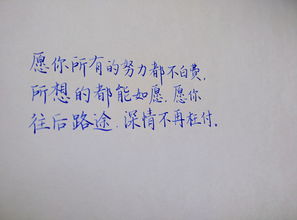 愿你所有的努力都不白费,
所想的都能如愿.愿你
往后路途.深情不再枉付.